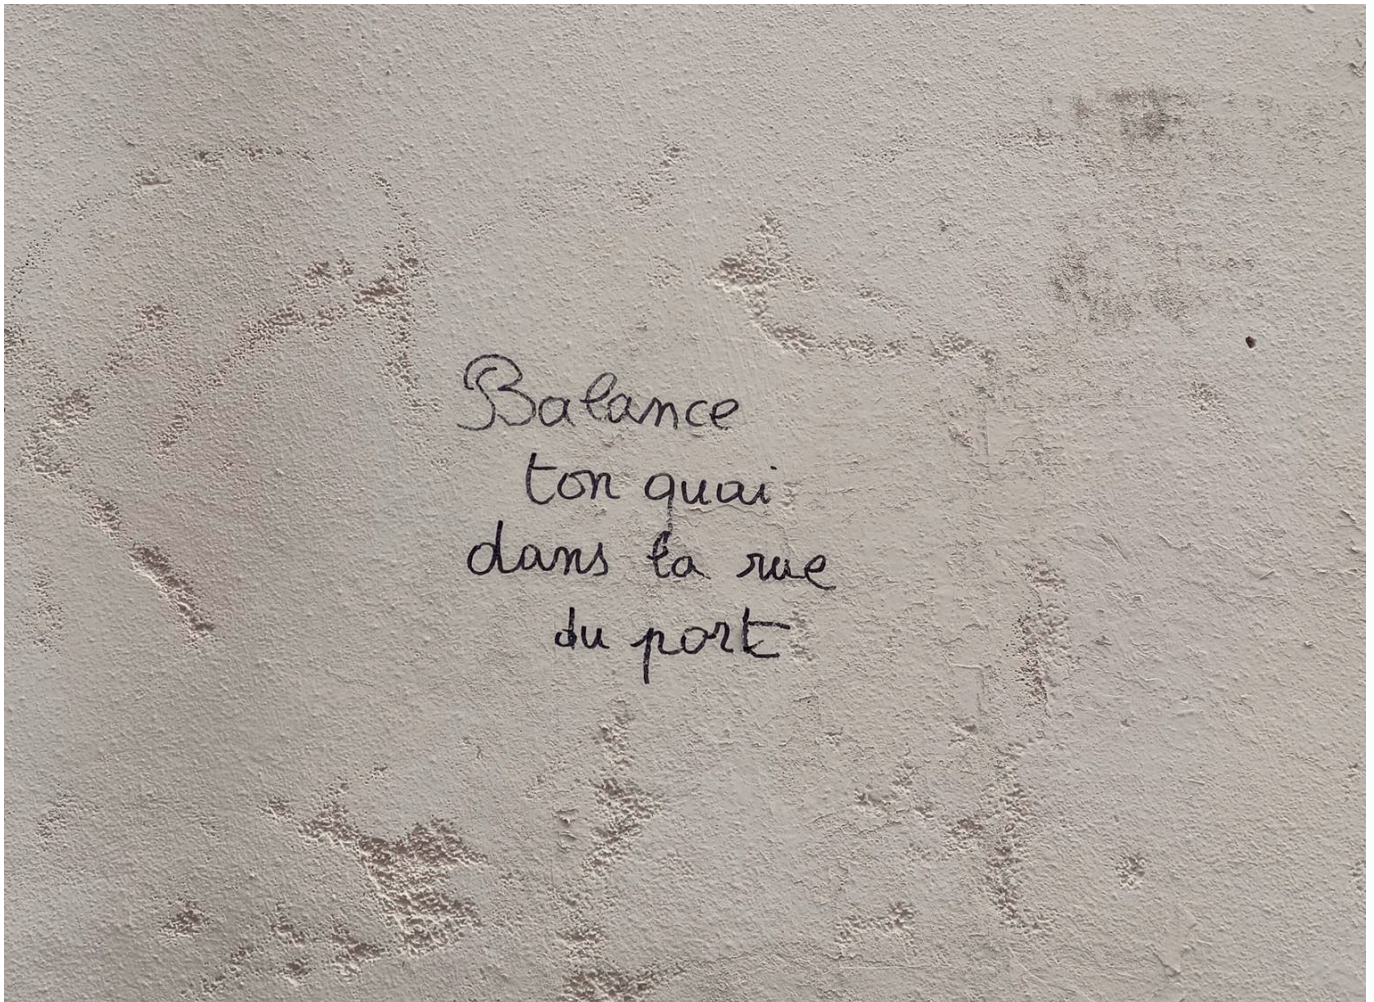 Balance
ton quai
dans la rue
du port